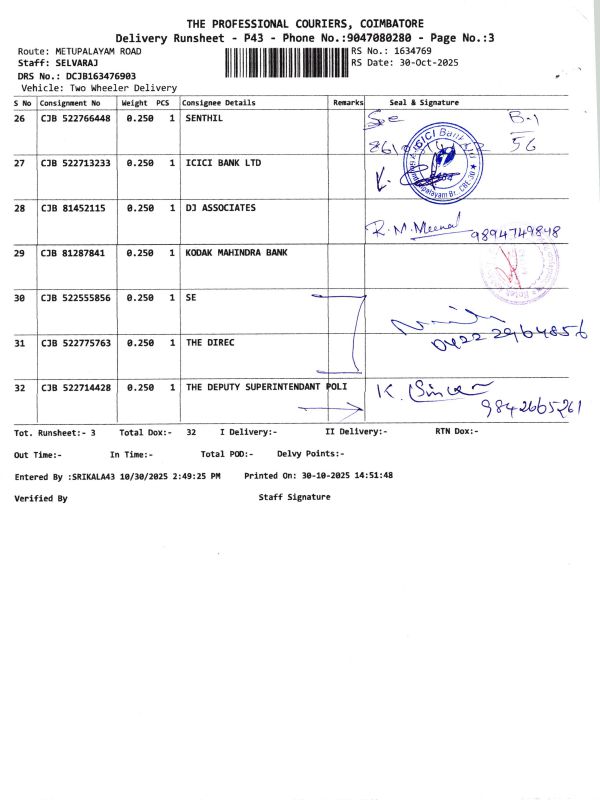 THE PROFESSIONAL COURIERS, COIMBATORE
Delivery Runsheet - P43 - Phone No.:9047080280 - Page No.:3
Route: METUPALAYAM ROAD RS No.: 1634769
Staff: SELVARAJ RS Date: 30-Oct-2025
DRS No.: DCJB163476903
Vehicle: Two Wheeler Delivery
S No Consignment No Weight PCS Consignee Details Remarks Seal & Signature
26 CJB 522766448 0.250 1 SENTHIL B-1
56
27 CJB 522713233 0.250 1 ICICI BANK LTD ICICI Bank Ltd
28 CJB 81452115 0.250 1 DJ ASSOCIATES R.M.Meenal 9894749848
29 CJB 81287841 0.250 1 KODAK MAHINDRA BANK
30 CJB 522555856 0.250 1 SE
31 CJB 522775763 0.250 1 THE DIREC 0422 2964856
32 CJB 522714428 0.250 1 THE DEPUTY SUPERINTENDANT POLI K.
9842665261
Tot. Runsheet:- 3 Total Dox:- 32 I Delivery:- II Delivery:- RTN Dox:-
Out Time:- In Time:- Total POD:- Delvy Points:-
Entered By :SRIKALA43 10/30/2025 2:49:25 PM Printed On: 30-10-2025 14:51:48
Verified By Staff Signature